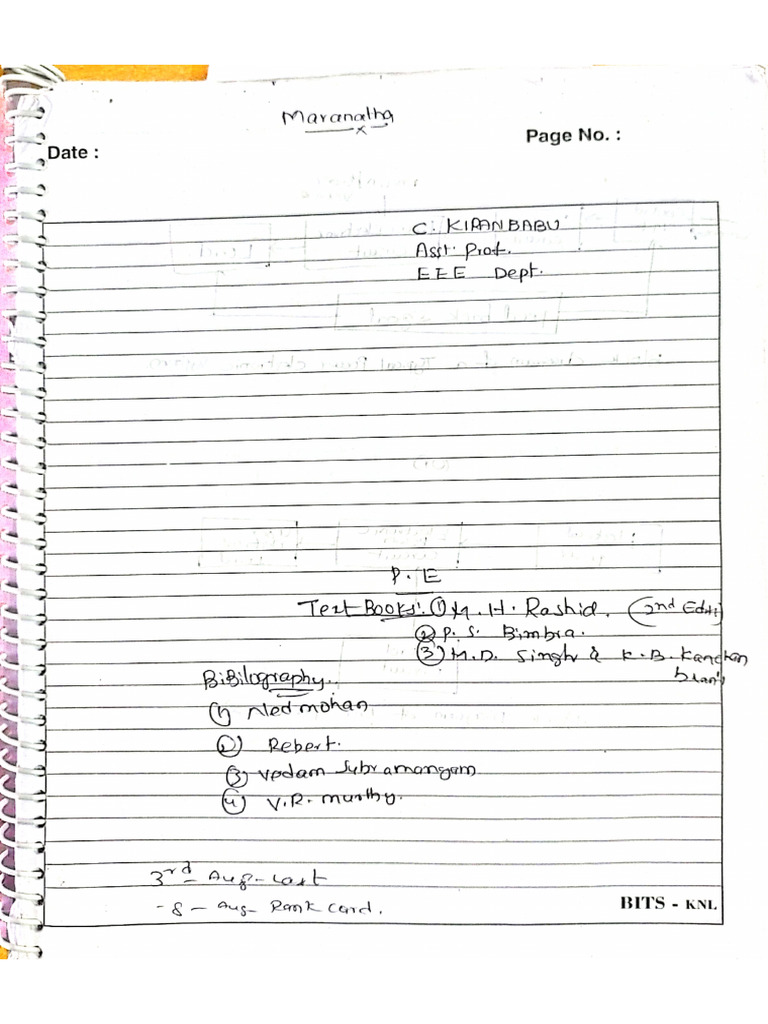 Maranatha
Date :
Page No. :
C. KIRAN BABU
Asst. Prof.
EEE Dept.
P. E
Text Books: ① M. H. Rashid. (2nd Editi
② P. S. Bimbra.
③ M.D. Singh & K.B. Kanchan
BiBilography..
① Ned mohan
② Robert.
③ Vedam Subramanyam
④ V.R. murthy.
3rd - Aug - Last
- 8 - Aug - Rank Card.
BITS - KNL